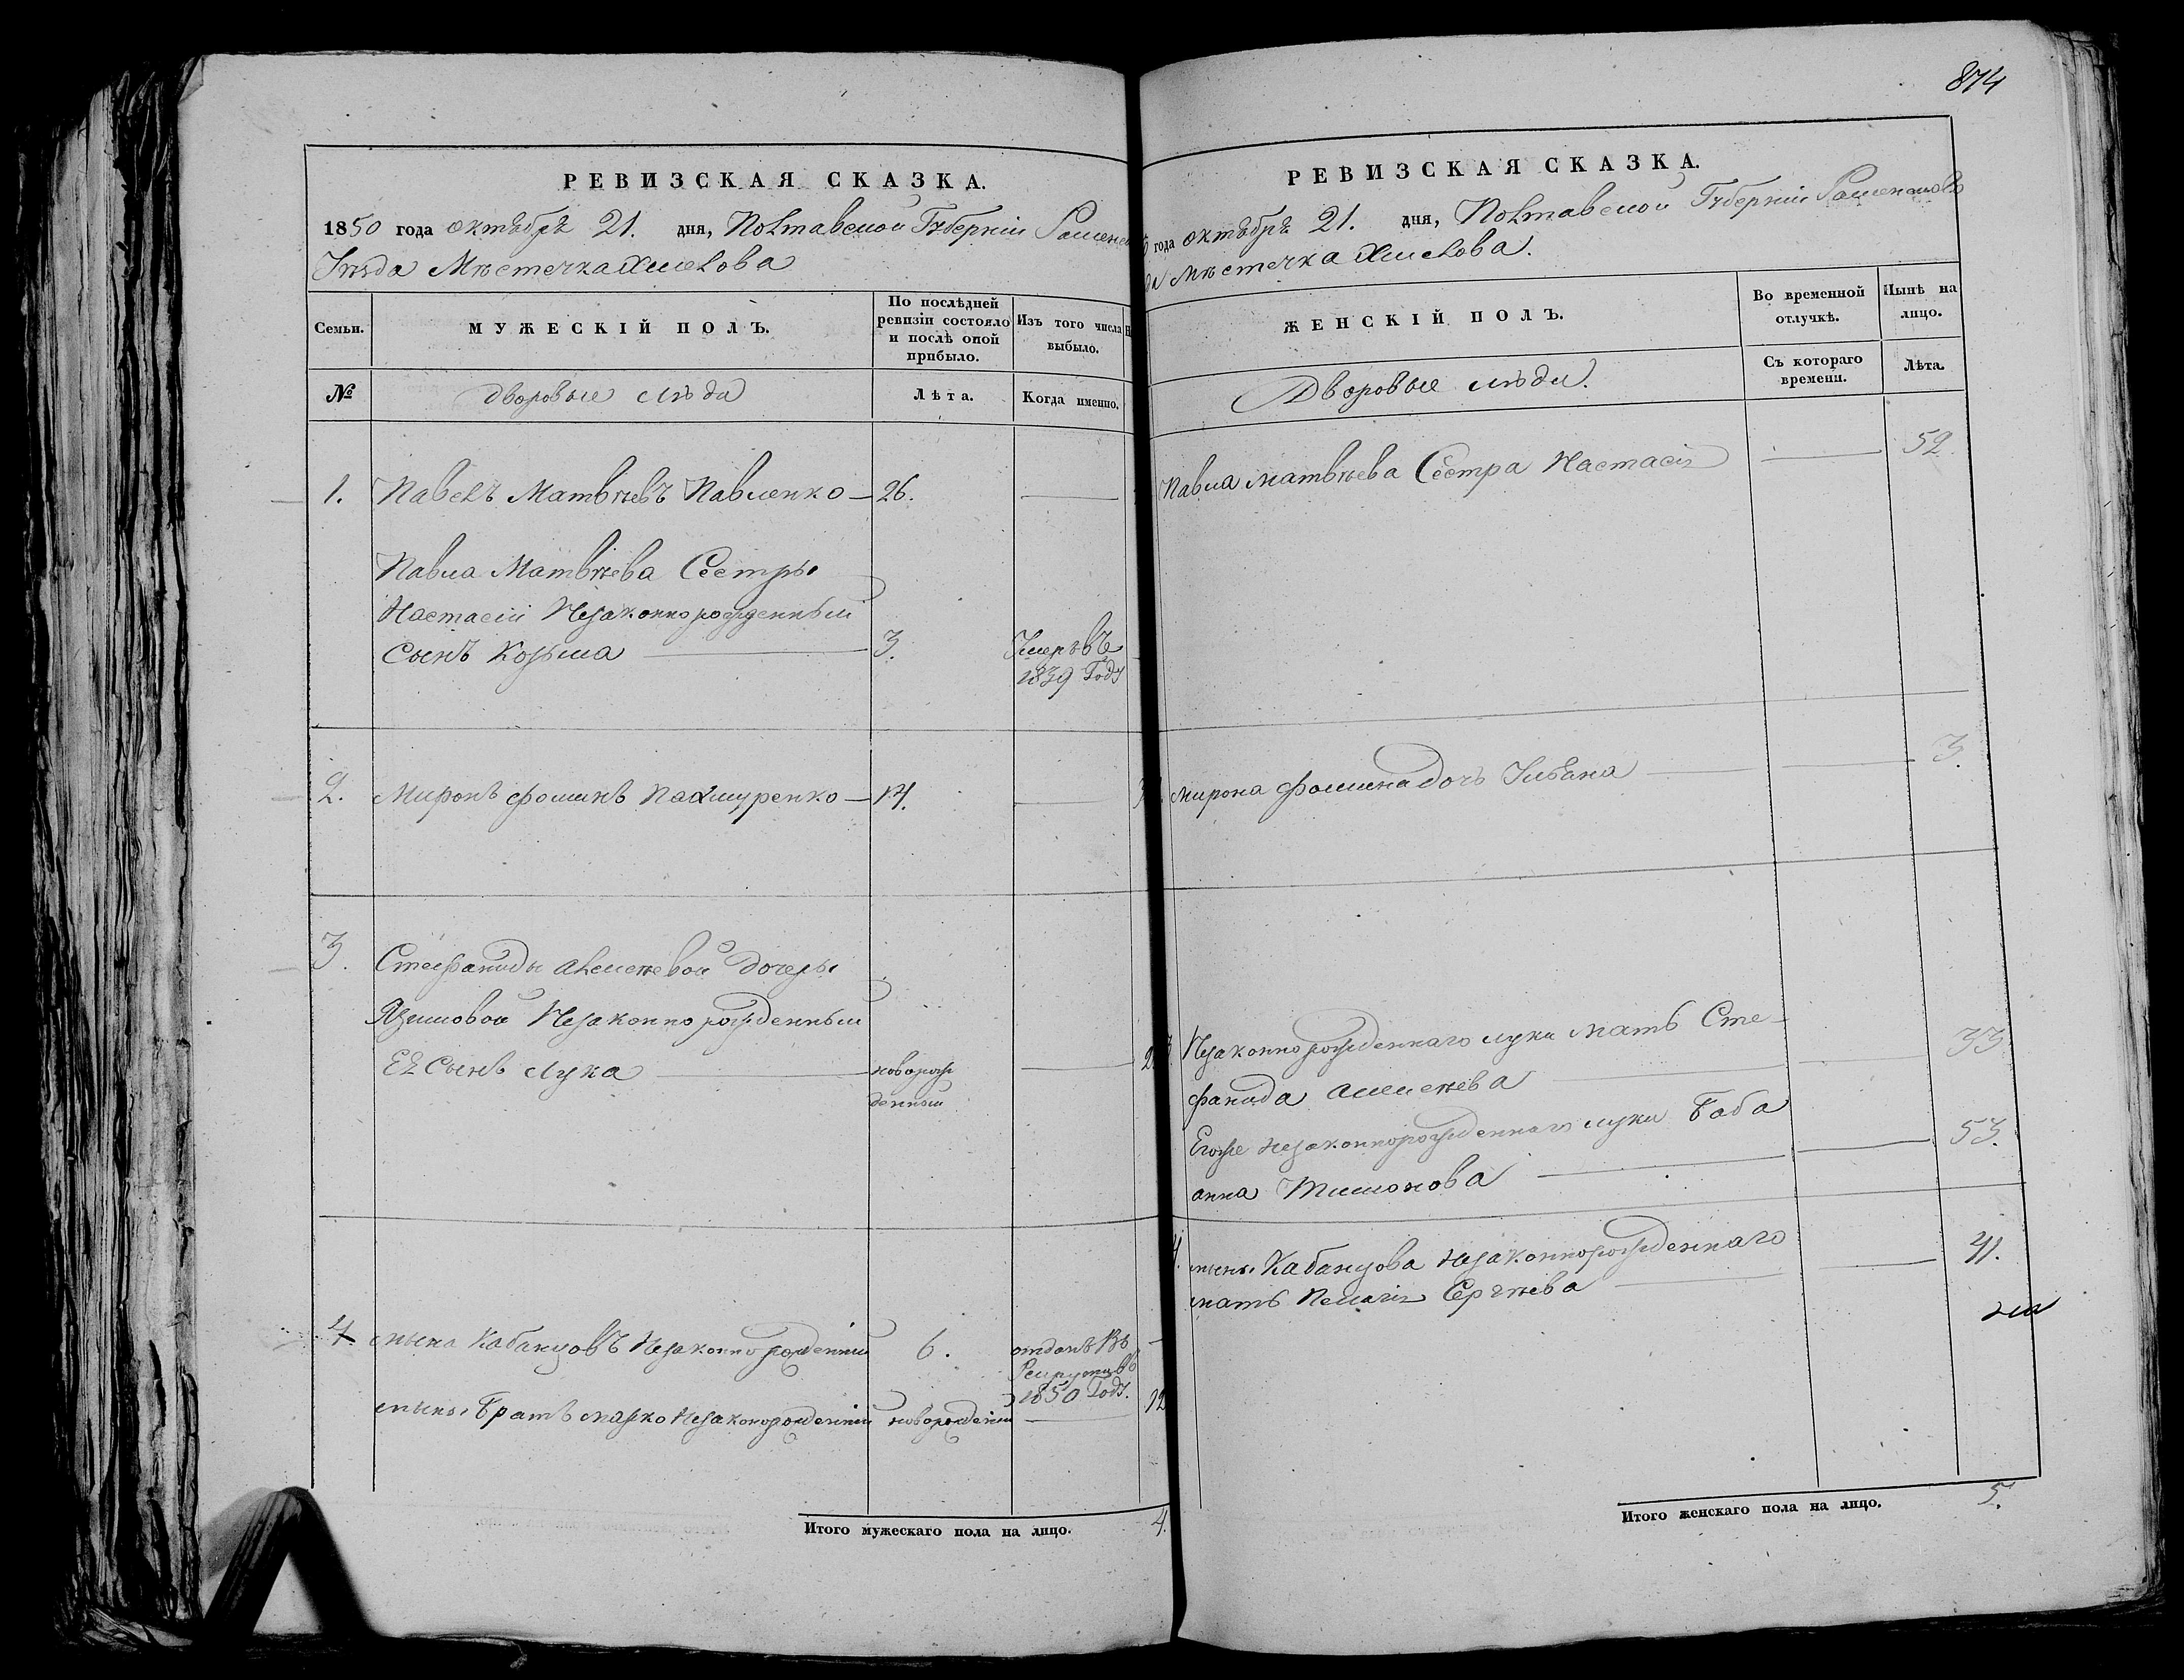 РЕВИЗСКАЯ СКАЗКА.
1850 года октября 21. дня, Полтавской Губерніи
Уезда Мѣстечка Хмелова
Семьи.
МУЖЕСКІЙ ПОЛЪ.
По послѣдней ревизіи состояло и послѣ оной прибыло.
Изъ того числа выбыло.
№
Дворовые люди
Лѣта.
Когда именно.
1. Павелъ Матвѣевъ Павленко 26.
Павла Матвѣева Сестры
Настасіи Незаконнорожденный
Сынъ Козьма 3. Умръ въ
1839 Году
2. Миронъ Фоминъ Пахмуренко 14.
3. Стефаниды Алексѣевой дочери
Незаконнорожденный
Еѣ Сынъ Лука новорож
денный
4 Кабанцовъ Незаконнорожденный 6. отданъ въ
Рекруты въ
1850 Году.
Братъ Марко Незаконорожденный новорожденный 12
Итого мужескаго пола на лицо. 4.
874
РЕВИЗСКАЯ СКАЗКА.
года октября 21. дня, Полтавской Губерніи
да Мѣстечка Хмелова.
ЖЕНСКІЙ ПОЛЪ.
Во временной отлучкѣ.
Нынѣ на лицо.
Дворовые люди.
Съ котораго времени.
Лѣта.
Павла Матвѣева Сестра Настасія 52.
Мирона Фомина дочь Ульяна 3.
Незаконнорожденнаго Луки мать Сте-
фанида 33
Егоже незаконнорожденнаго Луки Баба
Анна Тимонова 53.
Кабанцова незаконнорожденнаго
мать Пелагія Сергѣева 41.
Итого женскаго пола на лицо. 5.